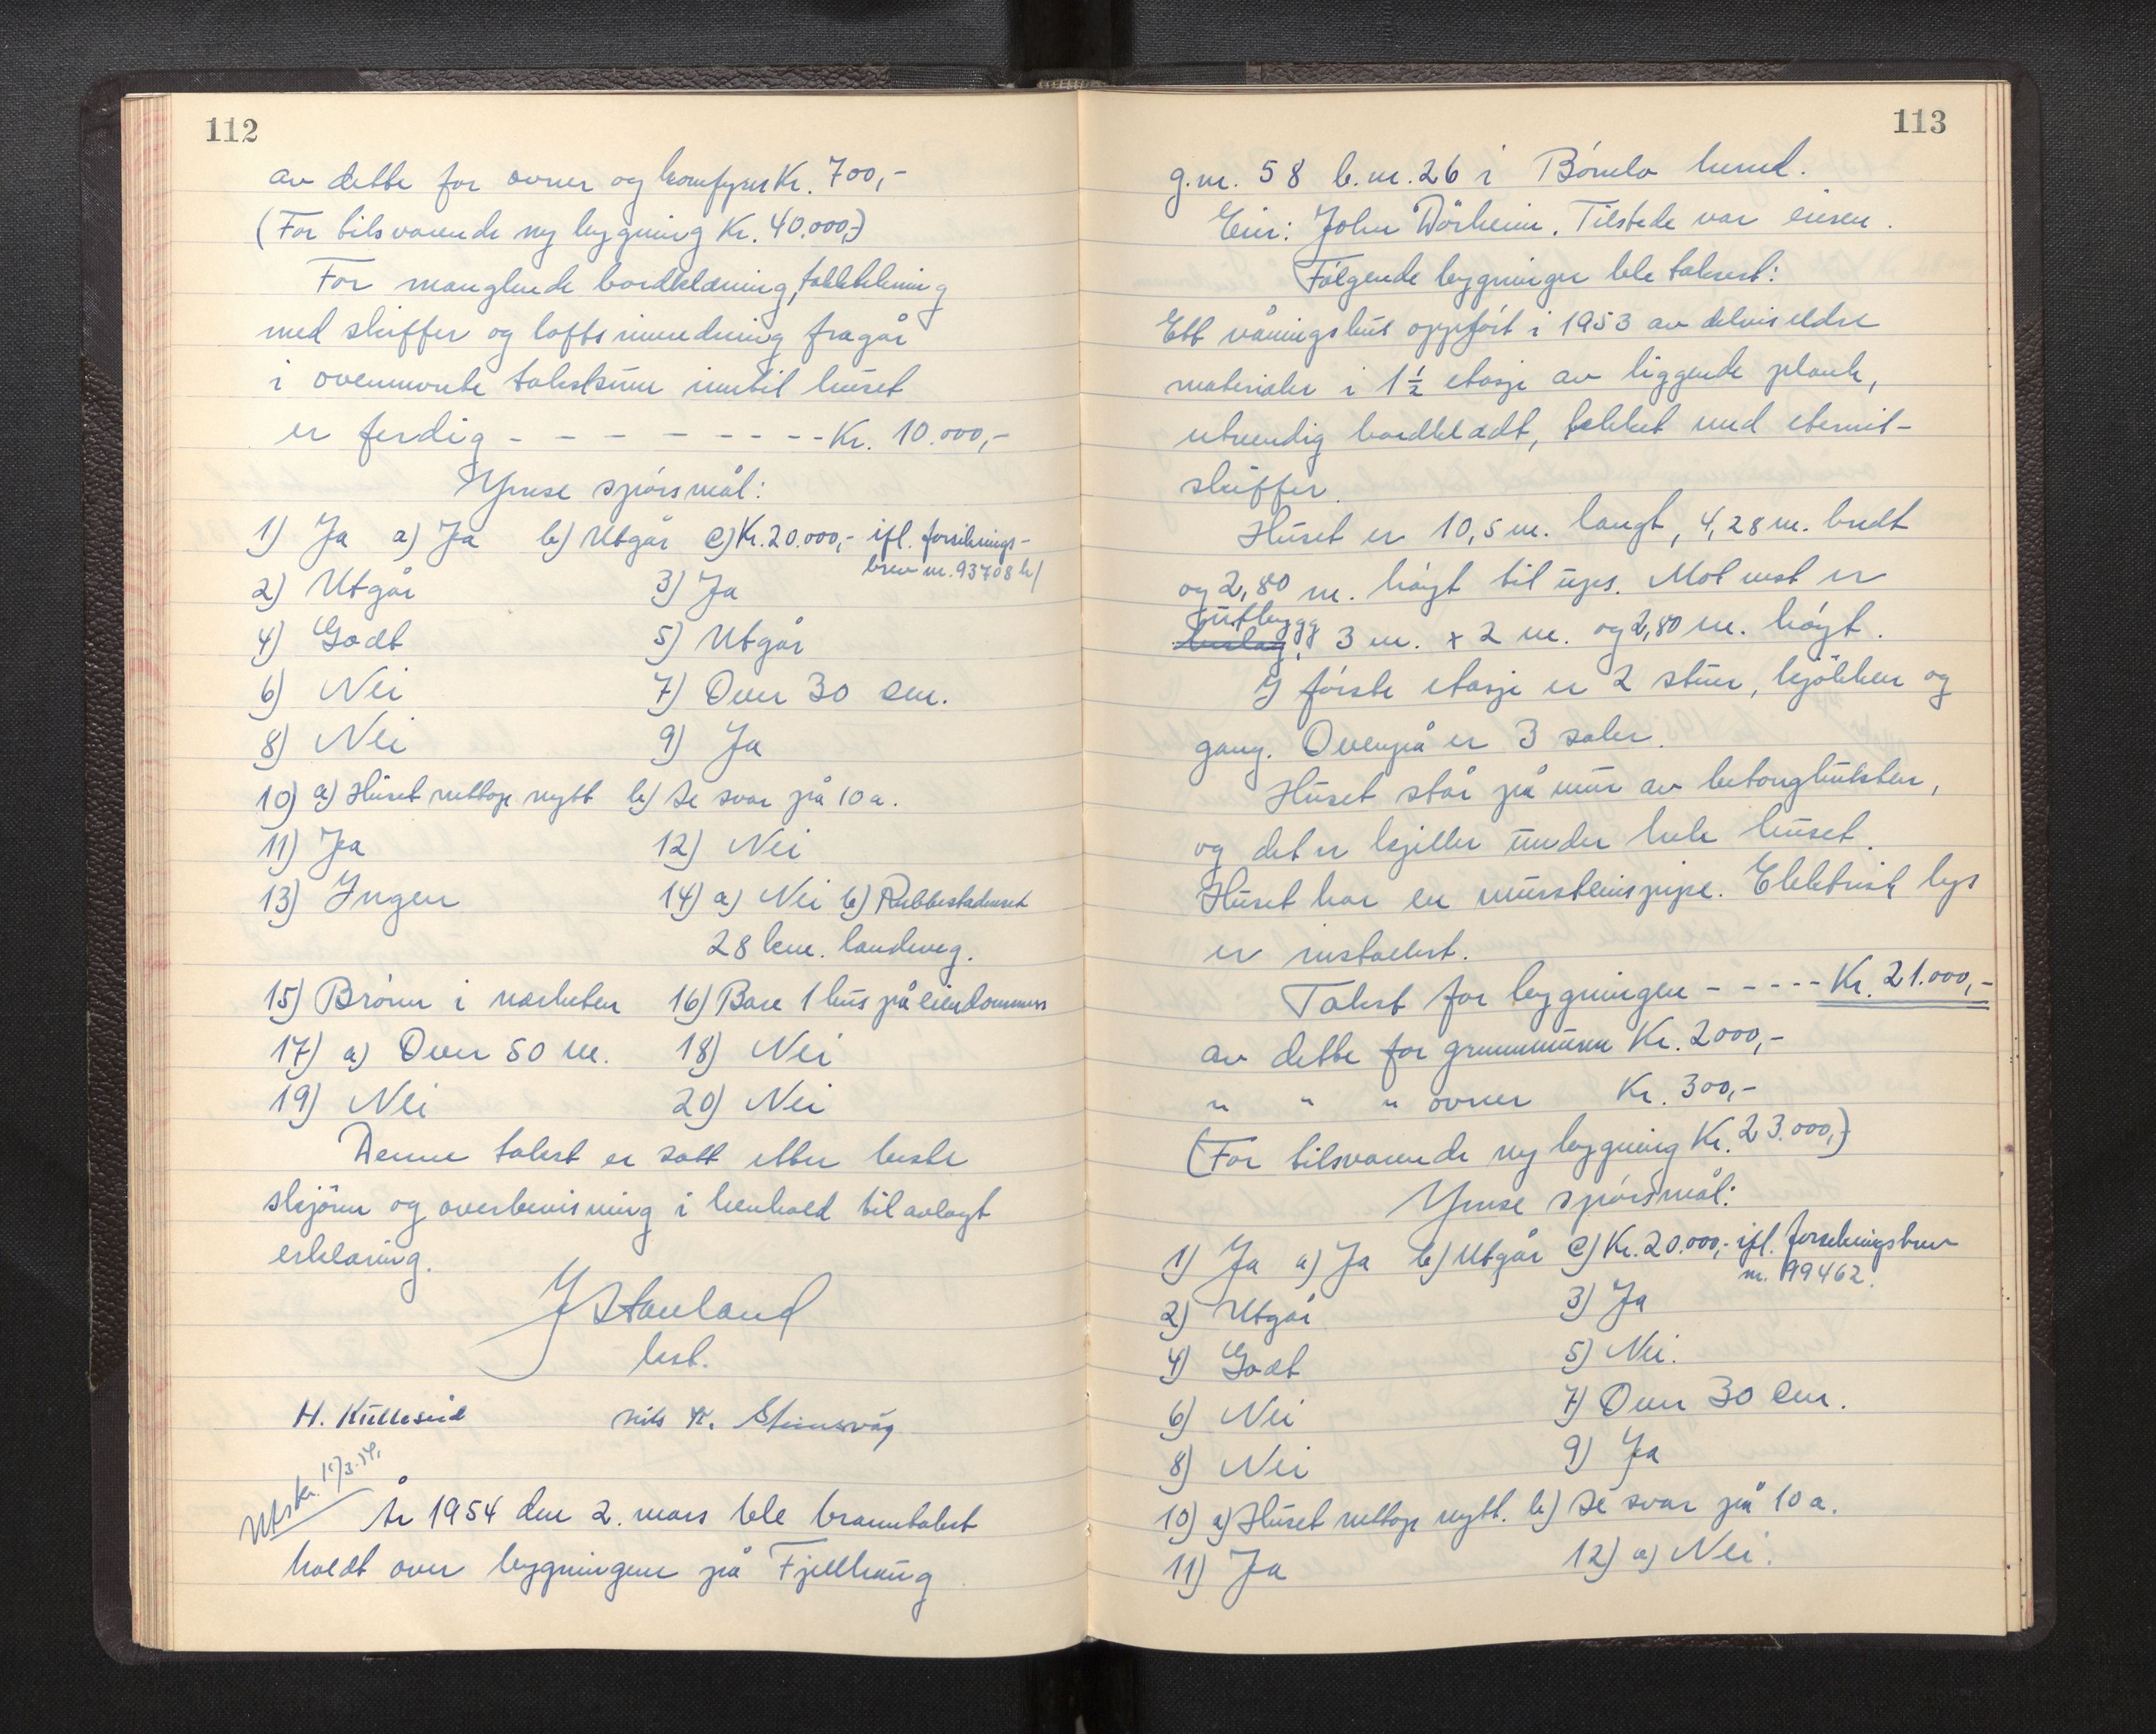 112
av dette for ovner og komfyrer Kr. 700,-
(For tilsvarende ny bygning Kr. 40.000,-)
For manglende bordkledning, taktekking
med skiffer og loftsinnredning fragår
i ovennevnte takstsum inntil huset
er ferdig - - - - - - - - - Kr. 10.000,-
Ymse spörsmål:
1) Ja a) Ja b) Utgår c) Kr. 20.000,- ifl. forsikrings-
brev nr. 93708 b/
2) Utgår 3) Ja
4) Godt 5) Utgår
6) Nei 7) Over 30 cm.
8) Nei 9) Ja
10) a) Huset nettop nytt b) Se svar på 10 a.
11) Ja 12) Nei
13) Ingen 14) a) Nei b) Rubbestadneset
28 km. landeveg.
15) Brönn i nærheten 16) Bare 1 hus på eiendommen
17) a) Over 50 m. 18) Nei
19) Nei 20) Nei
Denne takst er satt etter beste
skjönn og overbevisning i henhold til avlagt
erklæring.
J Stauland
lest.
H. Kulleseid Nils K. Steinsvåg
Utskr. 15/3.54.
År 1954 den 2. mars ble branntakst
holdt over bygningene på Fjellhaug
113
g.nr. 58 b.nr. 26 i Bömlo herred.
Eier: John Dörheim. Tilstede var eieren.
Fölgende bygninger ble taksert:
Ett våningshus oppfört i 1953 av delvis eldre
materialer i 1 1/2 etasje av liggende plank,
utvendig bordkledt, tekket med eternit-
skiffer.
Huset er 10,5 m. langt, 4,28 m. bredt
og 2,80 m. höyt til ups. Mot vest er
utbygg
beslag, 3 m. x 2 m. og 2,80 m. höyt.
I förste etasje er 2 stuer, kjökken og
gang. Ovenpå er 3 saler.
Huset står på mur av betonghulsten,
og det er kjeller under hele huset.
Huset har en murstenspipe. Elektrisk lys
er installert.
Takst for bygningen - - - - - Kr. 21.000,-
av dette for grunnmuren Kr. 2000,-
" " " ovner Kr. 300,-
(For tilsvarende ny bygning Kr. 23.000,-)
Ymse spörsmål:
1) Ja a) Ja b) Utgår c) Kr. 20.000,- ifl. forsikringsbrev
nr. 99462.
2) Utgår 3) Ja
4) Godt 5) Nei.
6) Nei 7) Over 30 cm.
8) Nei 9) Ja
10) a) Huset nettop nytt. b) Se svar på 10 a.
11) Ja 12) a) Nei.